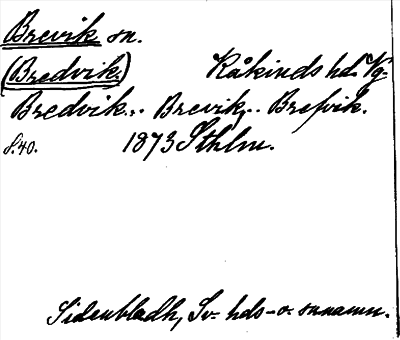 Brevik sn.
(Bredvik.) Kåkinds hd. Vg.
Bredvik.. Brevik,.. Brefvik.
s.40. 1873 Sthlm.
Sidenbladh, Sv. hds- o. snnamn.